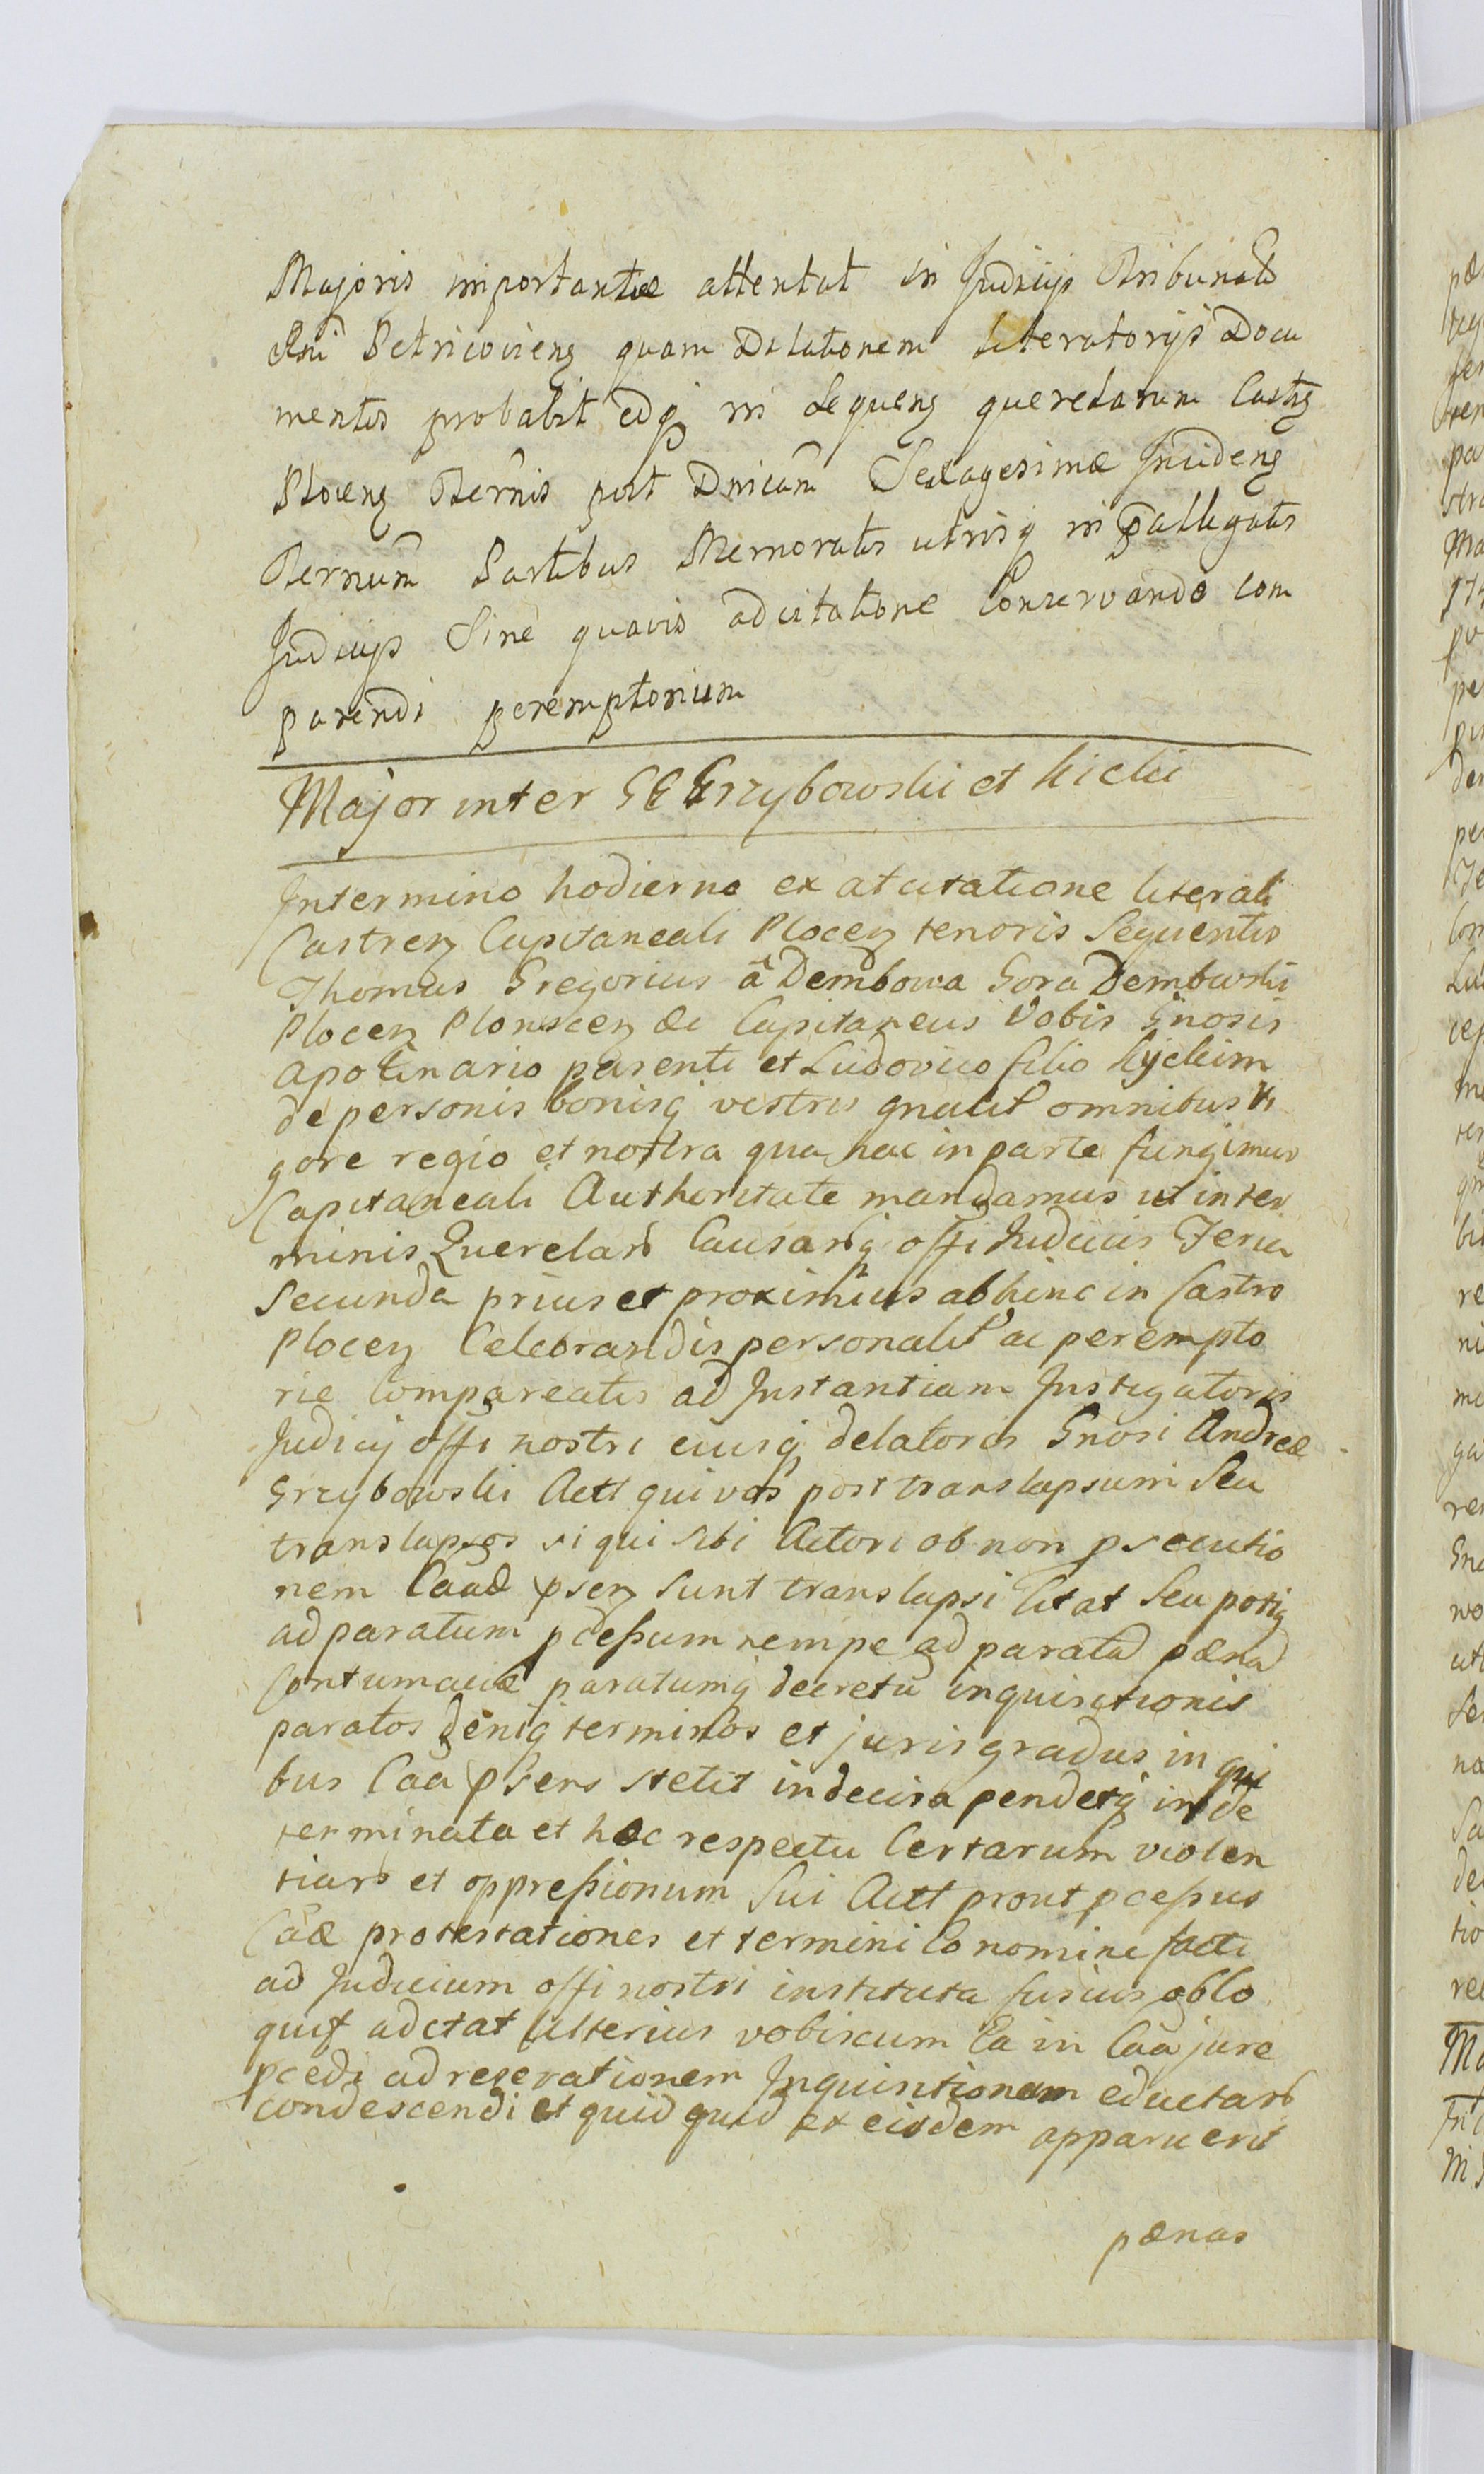 Majoris importantiæ attentat in Judicijs Tribunals
Rni Petricoviens quam Dilationem literatorijs Docu
mentis probabit edq in sequens querelarum Castrs
Plocens Terñis post Dnicam Sexagesimæ Incidens
Terminum Partibus Memoratis utrisq in pallegatis
Judicijs Sine quavis adcitatione Conservando com
parendi peremptorium
Major inter GG Grzybowski et Kicki
Intermino hodierno ex at citatione literali
Castren Capitaneali Plocen tenoris Sequentis
Thomas Gregorius â Dembowa Gora Dembowski
Plocen Plonscen &c Capitaneus Vobis Gnosis
Apolinario parenti et Ludovico filio Kyckim
de personis bonisq vestris gnalit omnibus Vi
gore regio et nostra qua hac in parte fungimur
Capitaneali Authoritate mandamus ut in ter
minis Querelar Causarq offi Judiciis Feria
Secunda prius et proximius abhinc in Castro
Plocen Celebrandis personalit ac perempto
rie Compareatis ad Instantiam Instigatoris
Judicij offi nostri eiusq delatoris Gnosi Andreæ
Grzybowski Actt qui vos post translapsum Seu
translapsos si qui sibi Actori ob non psecutio
nem Caæ psen sunt translapsi Citat Seu potiq
ad paratum pcessum nempe ad parata pæna
Contumaciæ paratumq decretu inquisitionis
paratos deniq terminos et juris gradus in qui
bus Caa psens stetit indecisa pendetq inde
terminata et hæc respectu Certarum violen
tiar et oppressionum Sui Actt prout pcessus
Caæ protestationes et termini Eo nomine facti
ad Judicium offi nostri instituta fusius oblo
quit adctat Ulterius vobiscum Ea in Caa jure
pcedi ad reserationem Inquisitionem eductar
condescendi et quidquid ex eisdem apparuerit
pænas